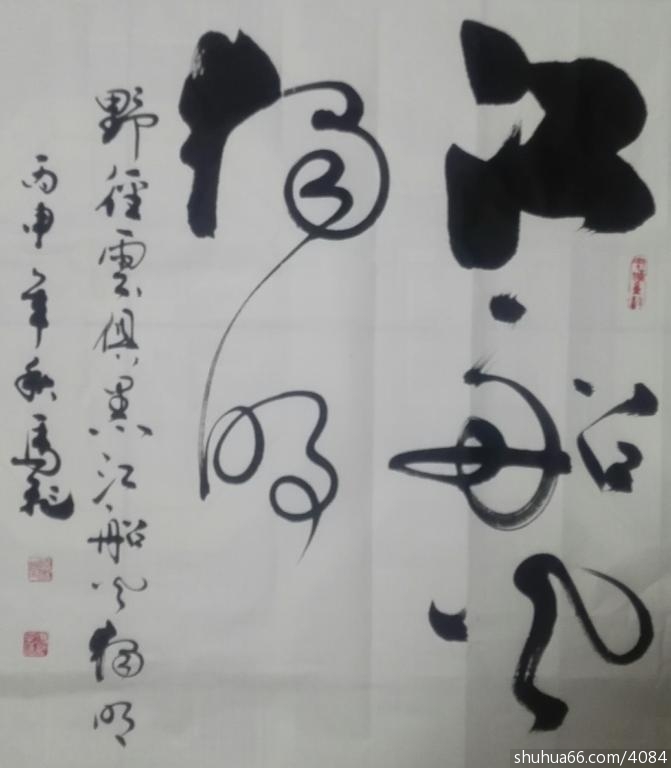 江船火
獨明
野徑雲俱黑江船火獨明
丙申年秋馬
shuhua66.com/4084